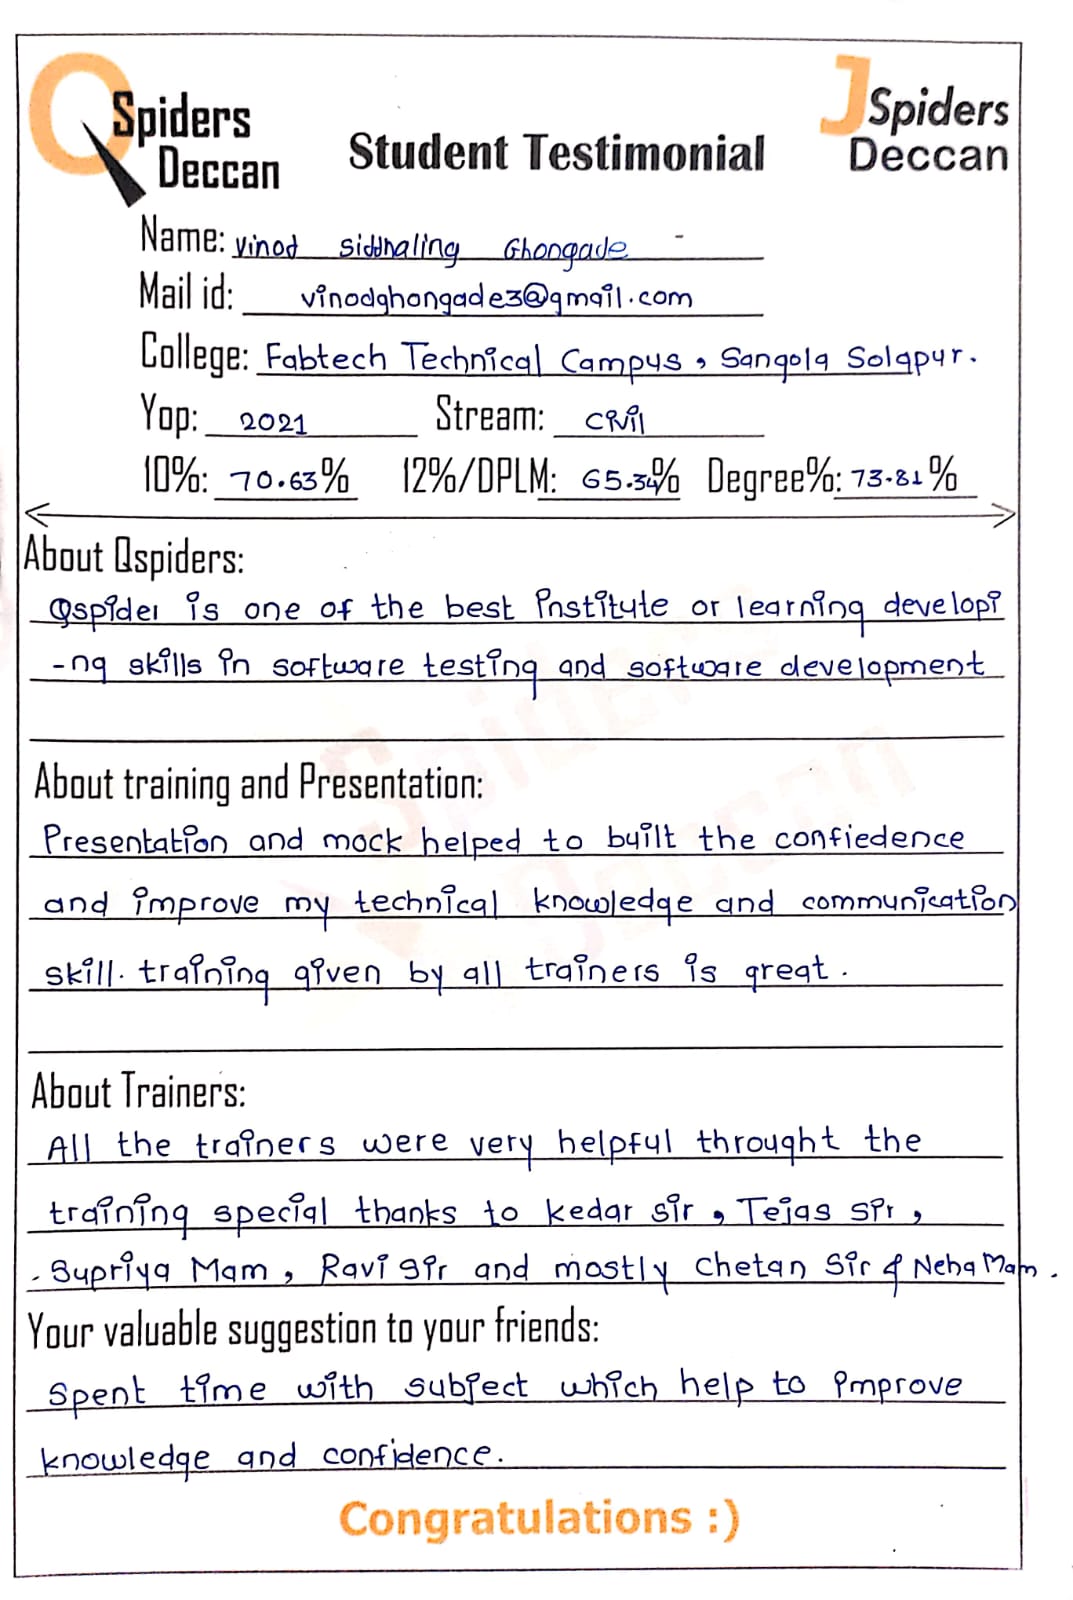 QSpiders
Deccan
JSpiders
Deccan
Student Testimonial
Name: Vinod Siddhaling Ghongade
Mail id: vinodghongade3@gmail.com
College: Fabtech Technical Campus, Sangola Solapur.
Yop: 2021 Stream: Civil
10%: 70.63% 12%/DPLM: 65.34% Degree%: 73.81%
About Qspiders:
Qspider is one of the best institute or learning developi
-ng skills in software testing and software development
About training and Presentation:
Presentation and mock helped to built the confiedence
and improve my technical knowledge and communication
skill. training given by all trainers is great.
About Trainers:
All the trainers were very helpful throught the
training special thanks to kedar sir, Tejas sir,
Supriya Mam, Ravi sir and mostly chetan Sir & Neha Mam.
Your valuable suggestion to your friends:
spent time with subject which help to improve
knowledge and confidence.
Congratulations :)
Spiders
Deccan